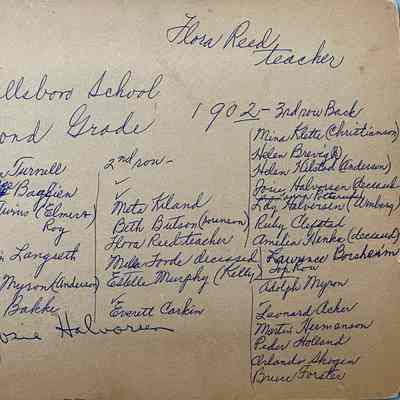 Flora Reed
teacher
llsboro School
ond Grade
1902 - 3rd row Back
n Turnell
Bagnien
Twins (Elmer &
Roy
Langseth
Myron (Anderson)
Bakke
Halvorsen
2nd row -
✓
✓
Meta Kiland
Beth Butson
Flora Reed teacher
Mille Foode deceased
Estelle Murphy (Kelley)
Everett Carkin
Mina Klette (Christianson)
Helen Brevig
Helen Kilstad (Anderson)
Josie Halvorsen deceased
Lily Halvorsen (Amberg)
Ruby Clefstad
Amelia Henke (deceased)
Lawrence Borsheim
Top Row
Adolph Myron
Leonard Acker
Martin Hermanson
Peder Holland
Orlando Skogen
Bruce Forster